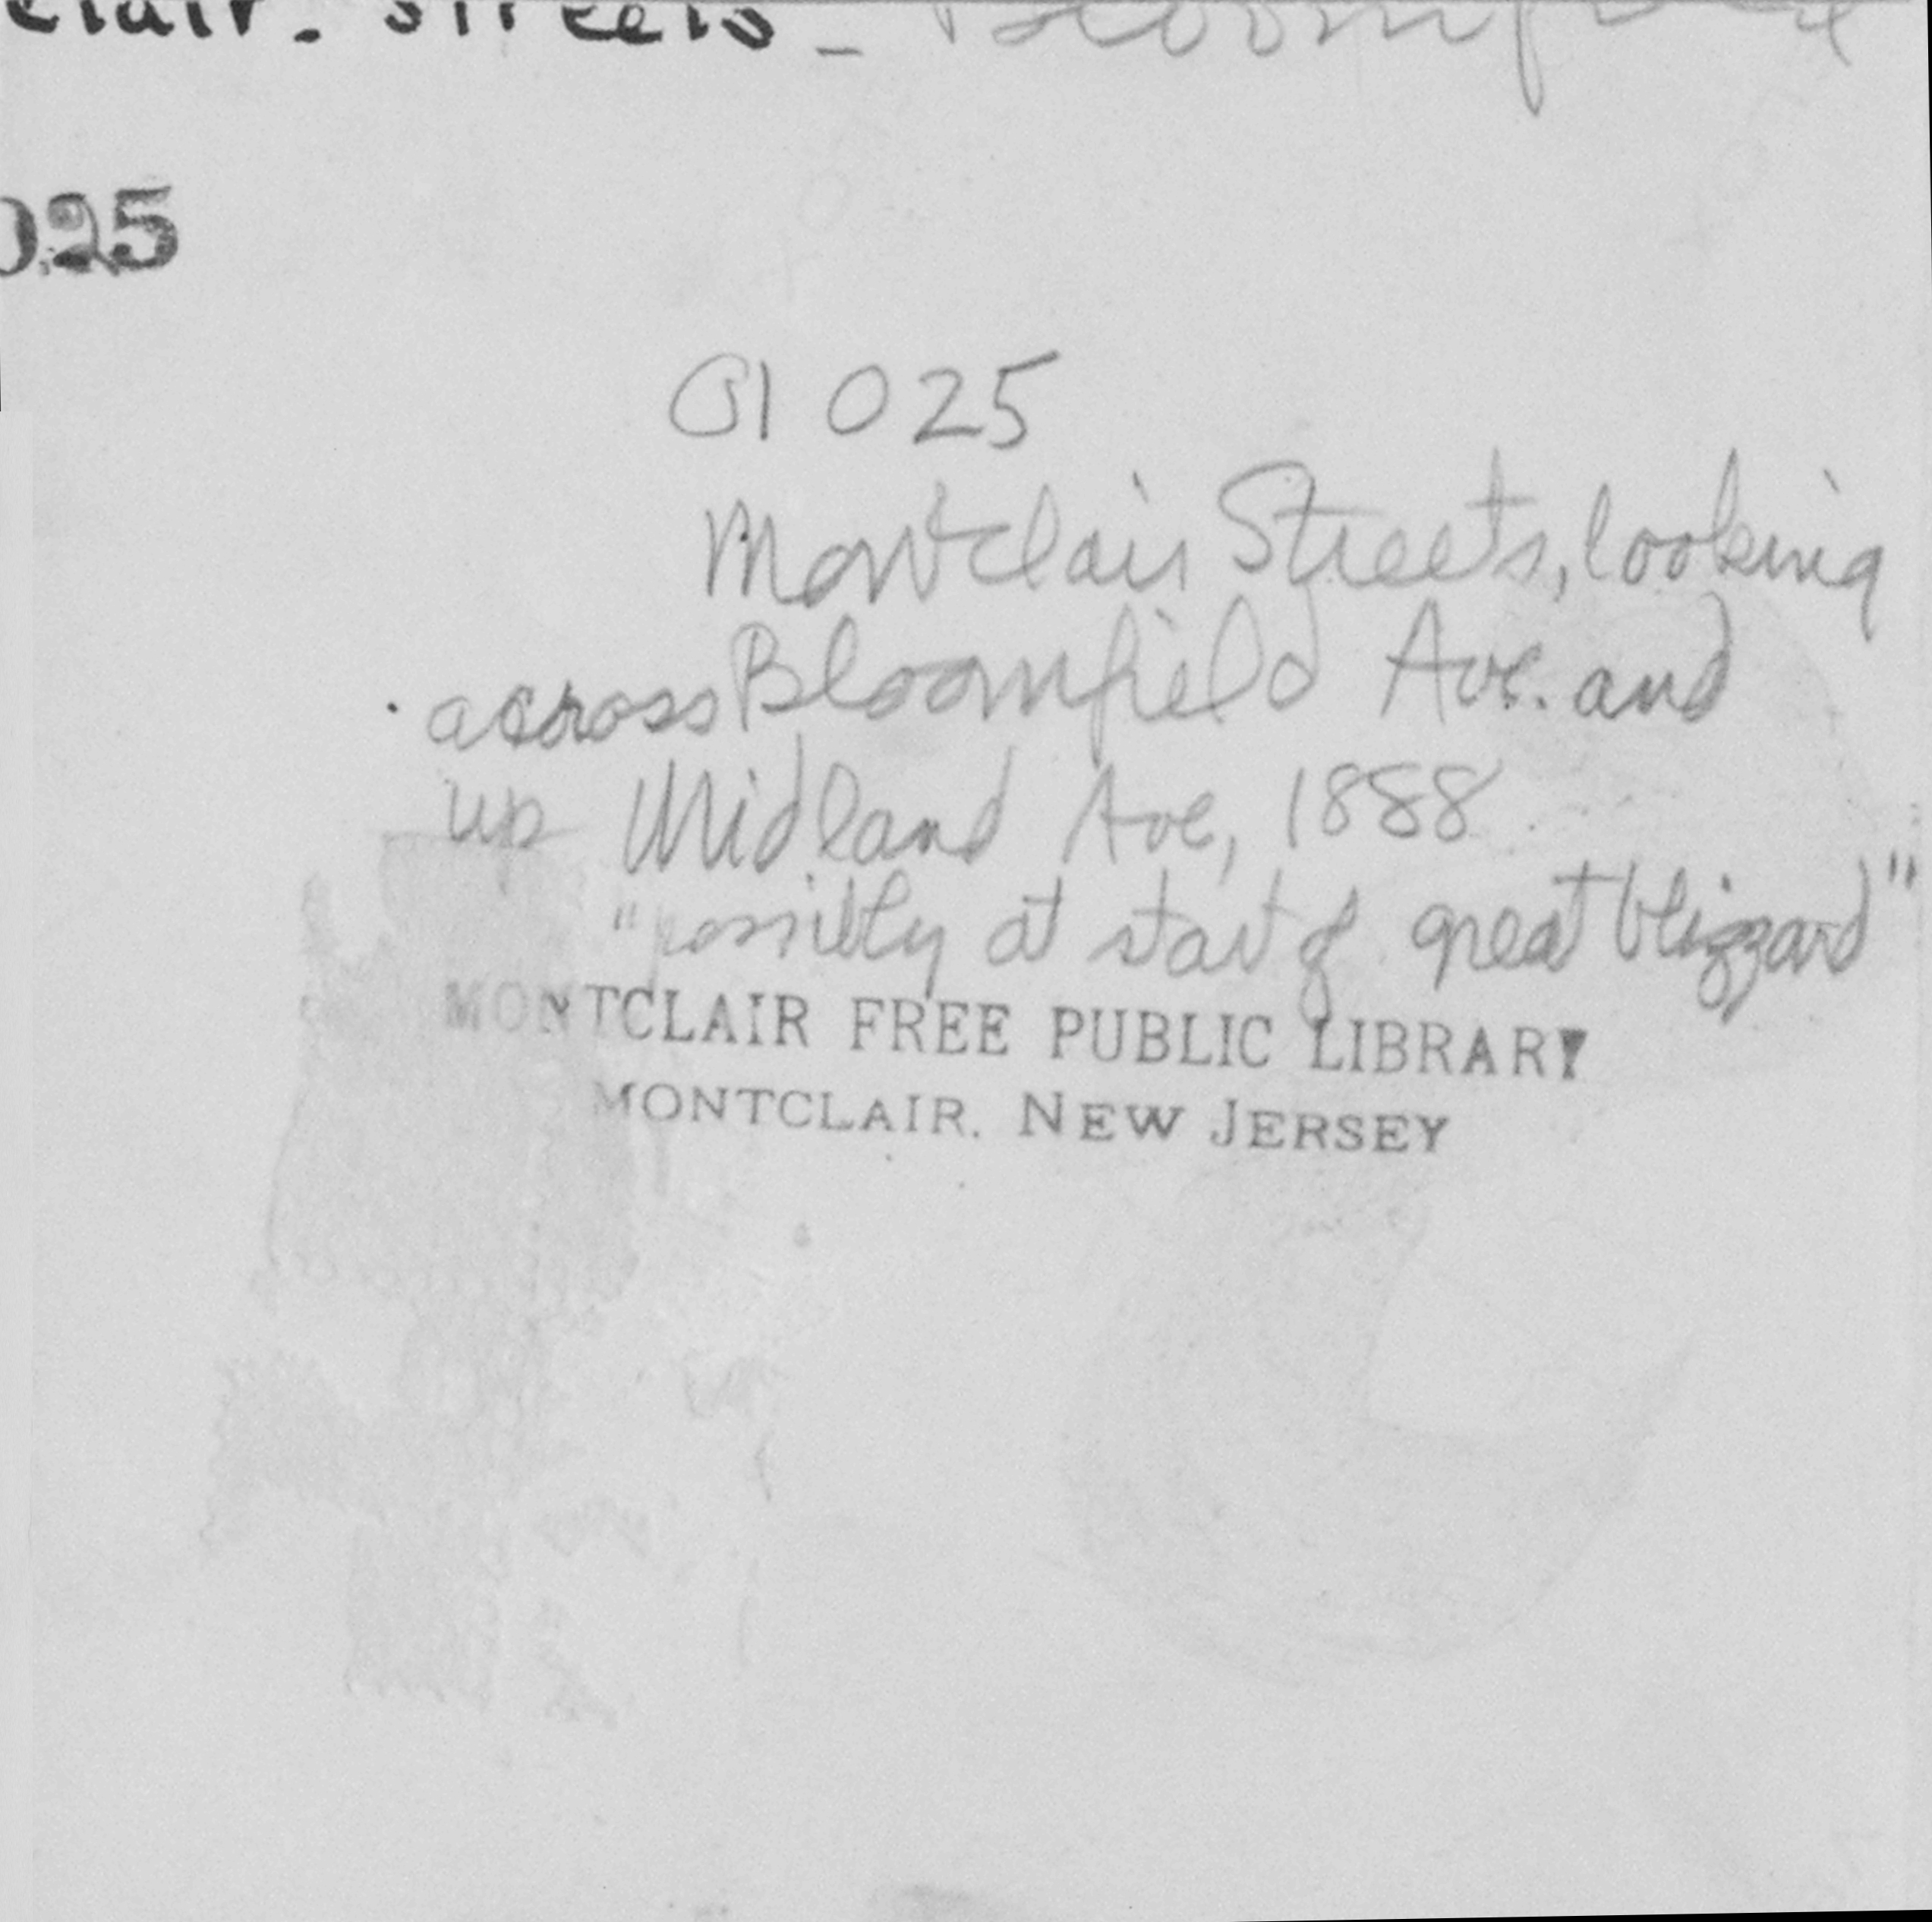 clair. streets - Bloomfield
025
01 025
Montclair Streets, looking
across Bloomfield Ave. and
up Midland Ave, 1888
"possibly at start of great blizzard"
MONTCLAIR FREE PUBLIC LIBRARY
MONTCLAIR, NEW JERSEY